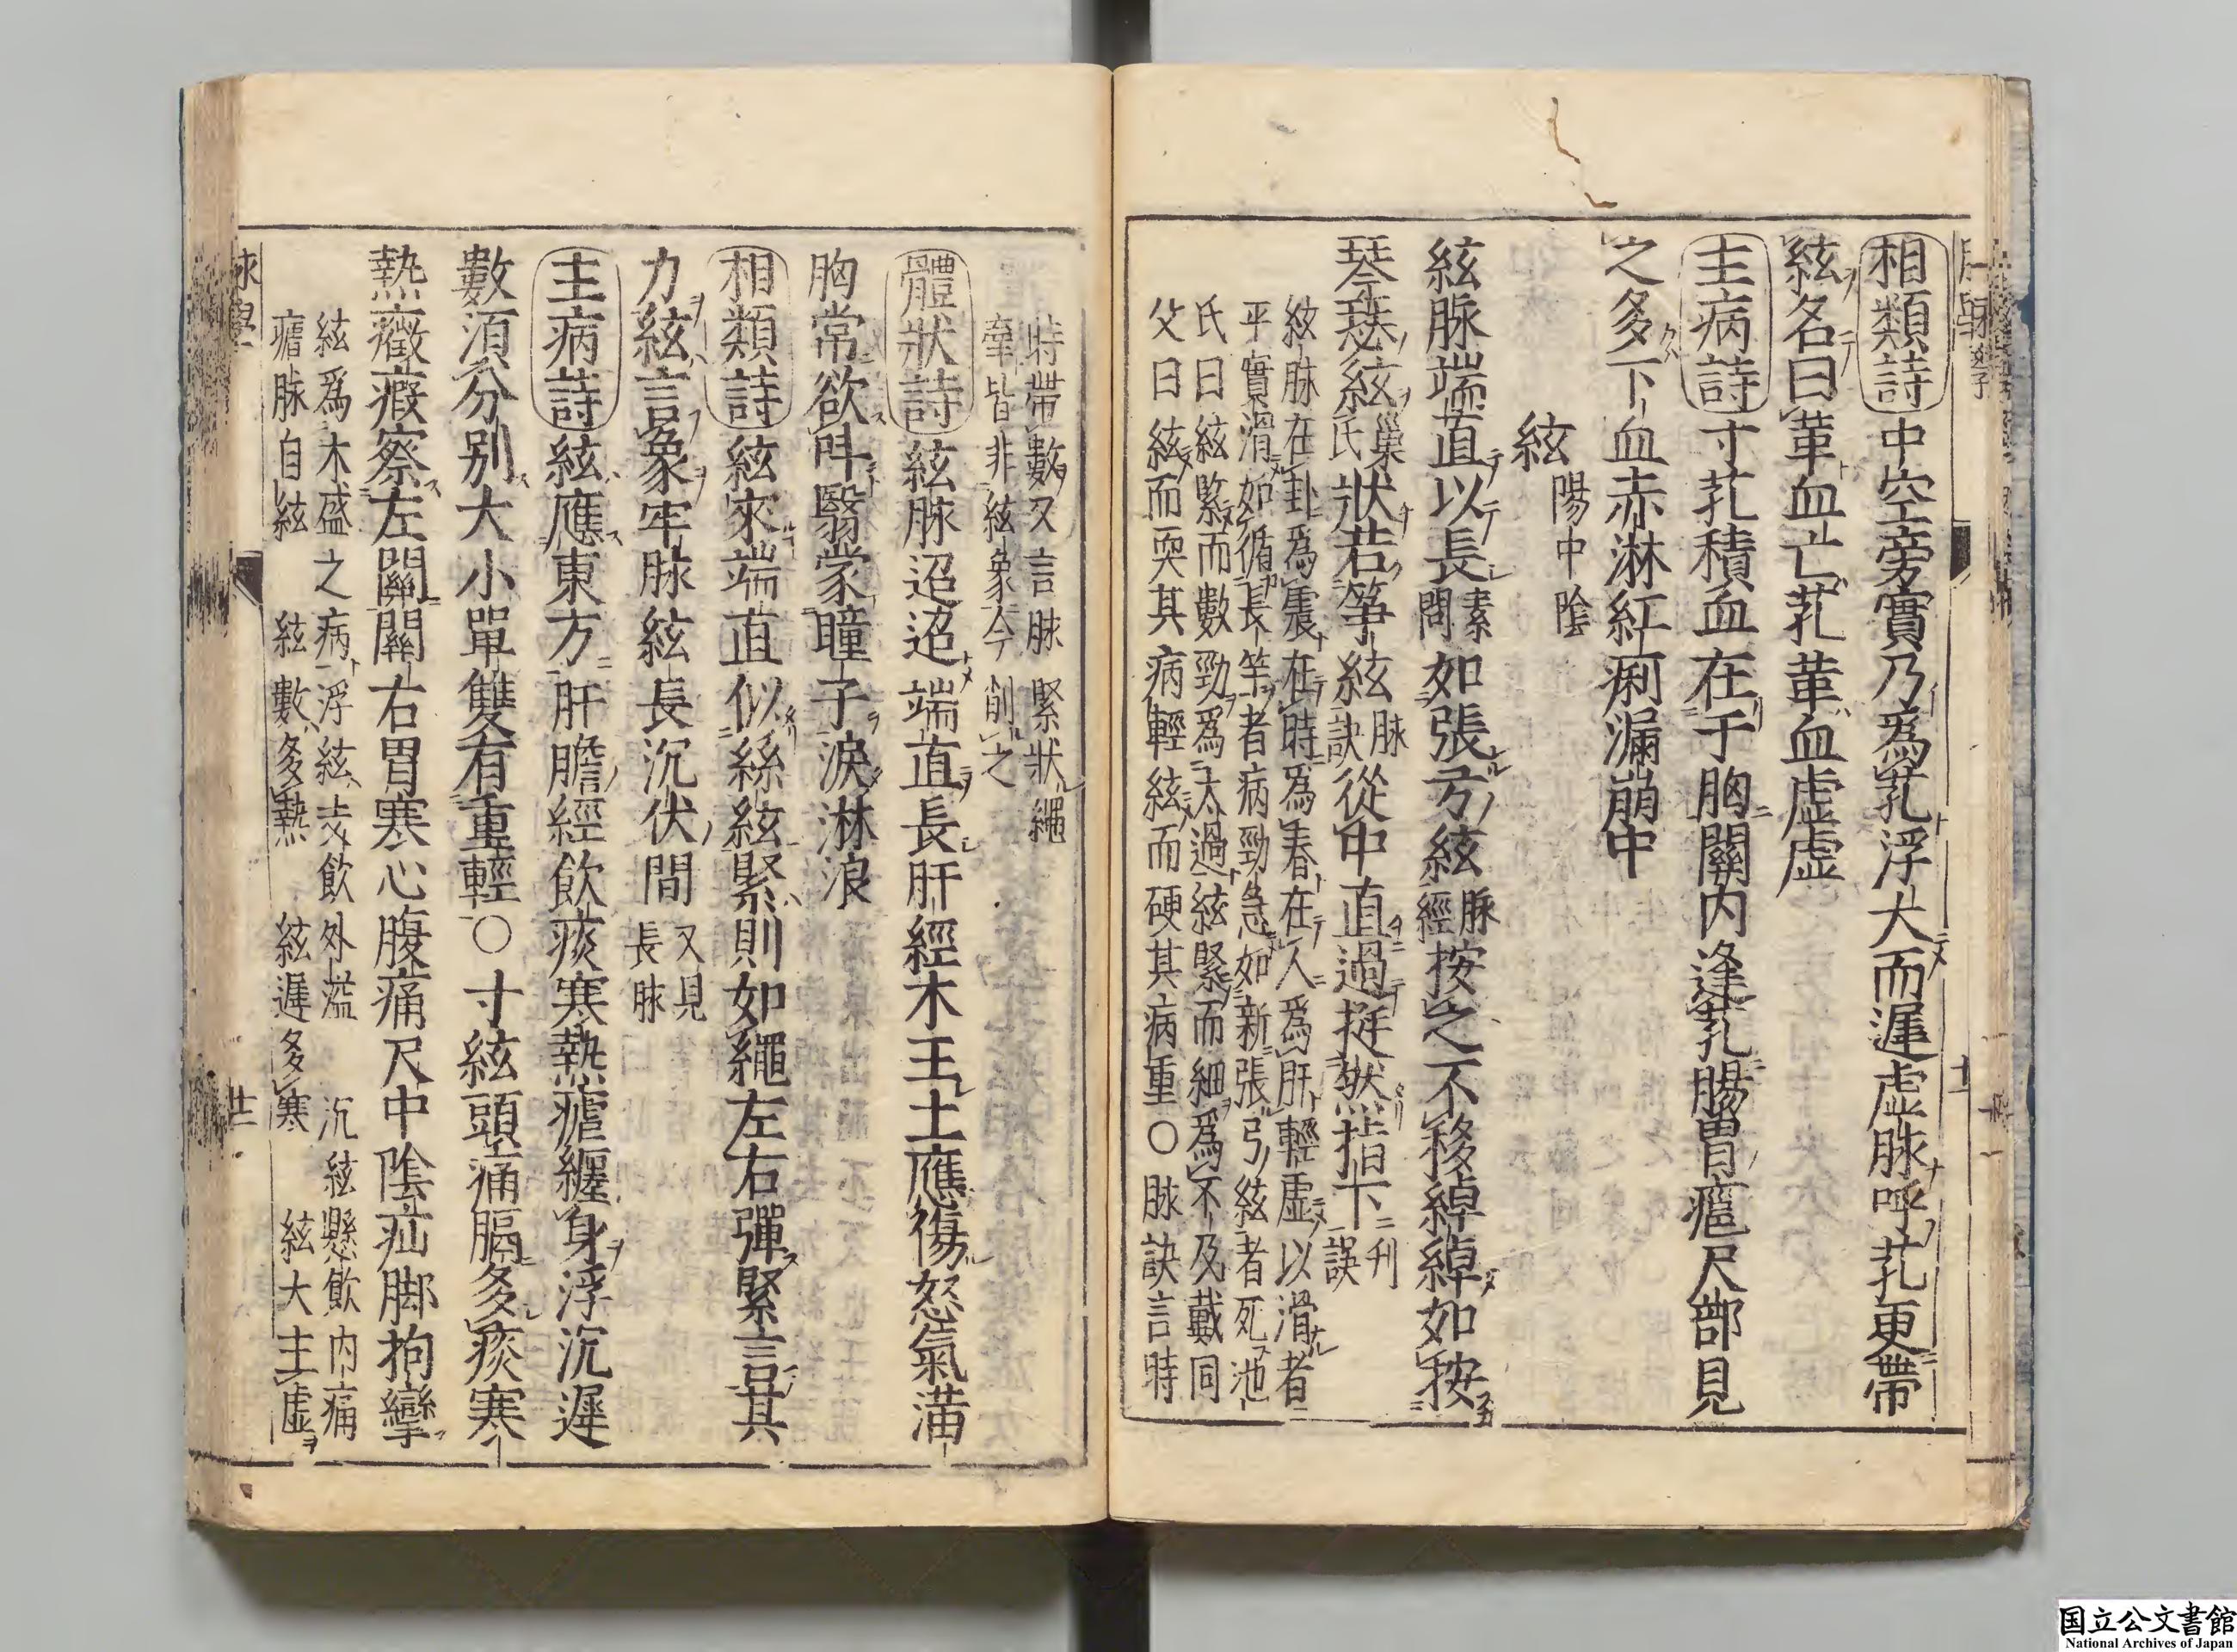 相類詩 中空旁實乃爲芤浮大而遲虛脉呼芤更帶
絃名曰革血亡芤革血虛虛
主病詩 寸芤積血在于胸關内逢芤腸胃癰尺部見
之多下血赤淋紅痢漏崩中
絃 陽中陰
絃脉端直以長 素問 如張弓絃 脉經 按之不移綽綽如按
琴瑟絃 巢氏 狀若箏絃 脉訣 從中直過挺然指下 刊誤
絃脉在卦爲震在時爲春在人爲肝輕虛以滑者
平實滑如循長竿者病勁急如新張弓絃者死池
氏曰絃緊而數勁爲太過絃緊而細爲不及戴同
父曰絃而耎其病輕絃而硬其病重〇脉訣言時
時帶數又言脉緊狀繩
牽皆非絃象今削之
體狀詩 絃脉迢迢端直長肝經木王土應傷怒氣滿
胸常欲呌翳蒙瞳子淚淋浪
相類詩 絃來端直似絲絃緊則如繩左右彈緊言其
力絃言象牢脉絃長沉伏間 又見長脉
主病詩 絃應東方肝膽經飲痰寒熱瘧纏身浮沉遲
數須分别大小單雙有重輕〇寸絃頭痛膈多痰寒
熱癥瘕察左關關右胃寒心腹痛尺中陰疝脚拘攣
絃爲木盛之病浮絃支飲外溢 沉絃懸飲内痛
瘧脉自絃 絃數多熱 絃遲多寒 絃大主虛
脉學 廿一
国立公文書館
National Archives of Japan